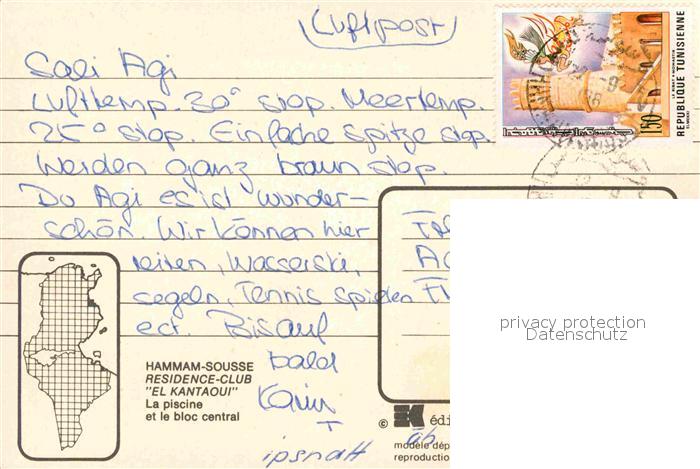 (Luftpost)
Sali Agi
Lufttemp. 30° stop. Meertemp.
25° stop. Einfache spitze stop.
Werden ganz braun stop.
Du Agi es ist wunder-
schön. Wir können hier
reiten, Wasserski,
segeln, Tennis spielen
ect. Bis auf
bald
Karin
REPUBLIQUE TUNISIENNE
1,50
HAMMAM-SOUSSE
RESIDENCE-CLUB
"EL KANTAOUI"
La piscine
et le bloc central
©
édi
modèle dép
reproductio
privacy protection
Datenschutz